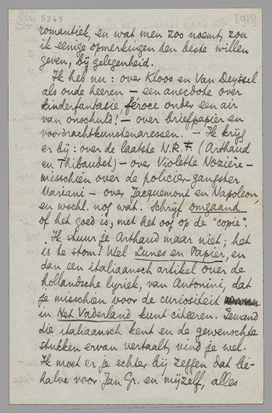 5249
romantiek, en wat men zoo noemt, zou
ik eenige opmerkingen ten beste willen
geven, bij gelegenheid.
Ik heb nu: over Kloos en Van Deyssel
als oude heeren — een anecdote over
kinderfantasie, féroce onder een air
van onschuld! — over briefpapier en
voordrachtkunstenaressen. — Ik krijg
er bij: over de laatste N.R.F. (Arthaud
en Thibaudet) — over Violette Nozière —
misschien over de policier-gangster
Mariani — over Jacquemont en Napoleon,
en wschl. nog wat. Schrijf omgaand
of het goed is, met het oog op de "copie".
Ik stuur je Arthaud maar niet; het
is te stom! Wel Lunes en Papier, en
dan een italiaansch artikel over de
hollandsche lyriek, van Antonini, dat
je misschien voor de curiositeit
in Het Vaderland kunt citeeren. Iemand
die italiaansch kent en de gewenschte
stukken ervan vertaalt, vind je wel.
Ik moet er je echter bij zeggen dat be-
halve voor Jan Gr. en mijzelf, alles